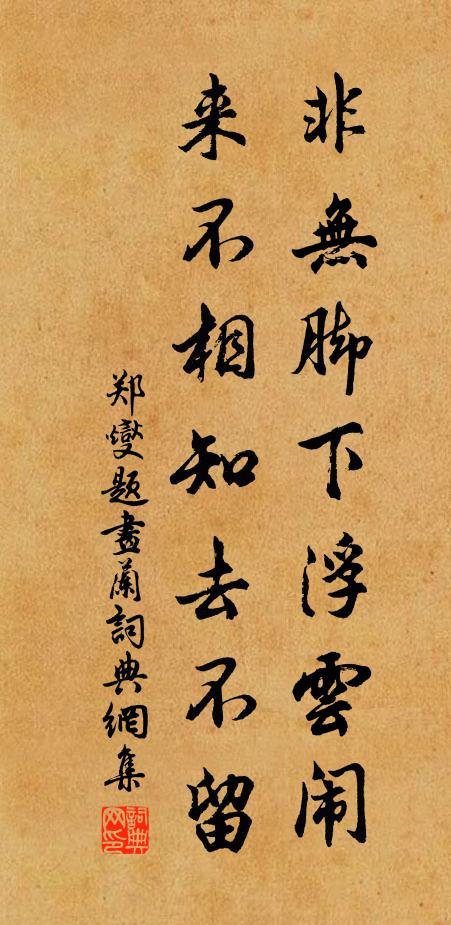 非無脚下浮雲闹
来不相知去不留
郑燮题畫蘭詞典網集
詞典网印